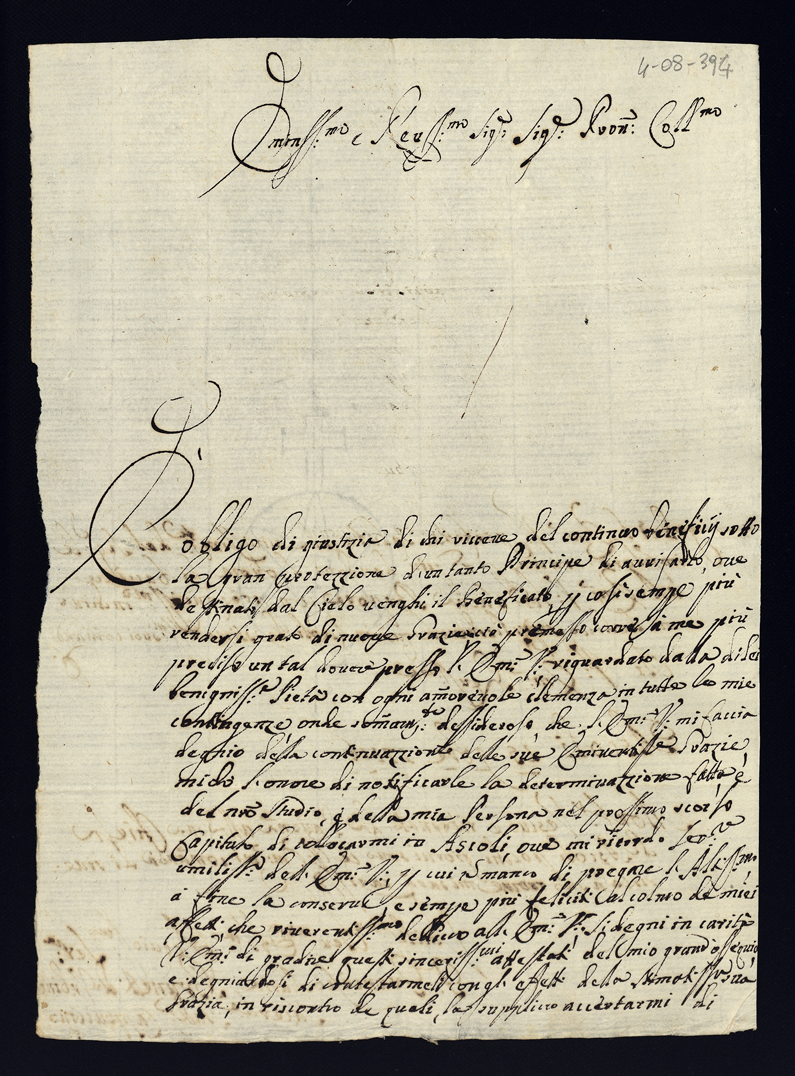 4-08-394
Eminss:mo e Reuss:mo Sig: Sig: Pron: Coll mo
È obligo di giustizia di chi viceue del continuo beneficij sotto
la gran Protezzione d'un tanto Principe di auuisarlo, oue
destinato dal Cielo uenghi il beneficato, p così sempre più
rendersi grato di nuoue Grazie; ciò premesso corre a me più
preciso un tal douere presso l'Em: V: riguardato dalla di lei
benigniss: Pietà con ogni amoreuole clemenza in tutte le mie
contingenze, onde somam:te dessideroso che l'Em: V: mi faccia
degnio della continuazzione delle sue Eminentiss: Grazie,
l'onore di notificarle la determinazzione fatta
del nro Studio, della mia Persona nel prossimo scorso
Capitolo di collocarmi in Ascoli, oue mi ricordo Ser:re
umiliss: dell'Em: V:, p cui manco di pregare l'Altiss:mo
a fine la conserui e sempre più feliciti al colmo de miei
affetti che riuerentiss:mo dedico all'Em: V: Si degni in carità
l'Em: di gradire questi sinceriss:mi attestati del mio grand'ossequio
e degniandosi di contestarmeli con gl'effetti della Stimatiss: sua
Grazia, in riscontro de quali, la supplico accertarmi di